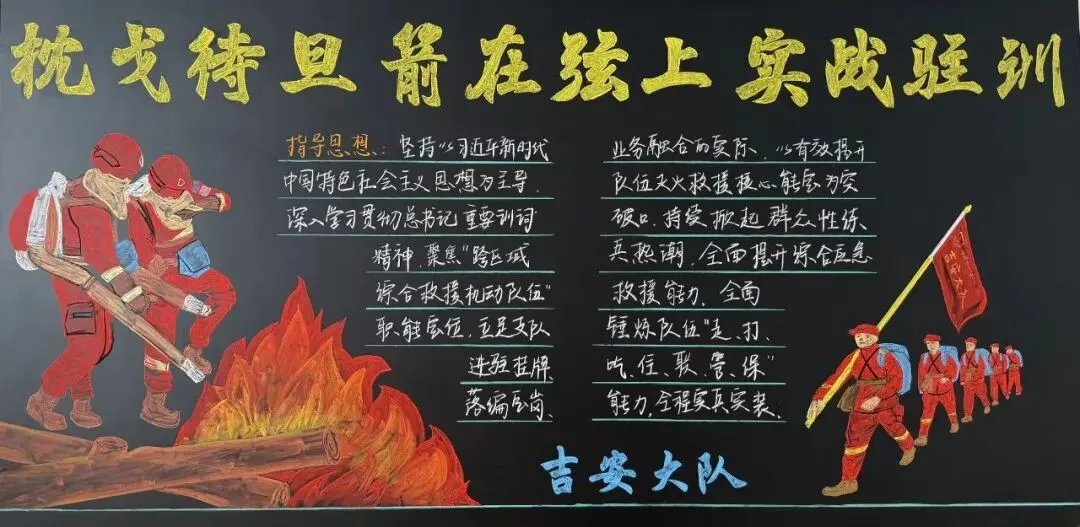 枕戈待旦 箭在弦上 实战驻训
指导思想：坚持“以习近平新时代
中国特色社会主义思想为主导、
深入学习贯彻总书记重要训词
精神、聚焦“跨区域
综合救援机动队伍”
职能定位，立足支队
进驻挂牌
落编定岗、
业务融合的实际，以有效提升
队伍灭火救援核心能力为突
破口，持续掀起群众性练
兵热潮，全面提升综合应急
救援能力，全面
锤炼队伍“走、打、
吃、住、联、管、保”
能力，全程实真实装、
吉安大队